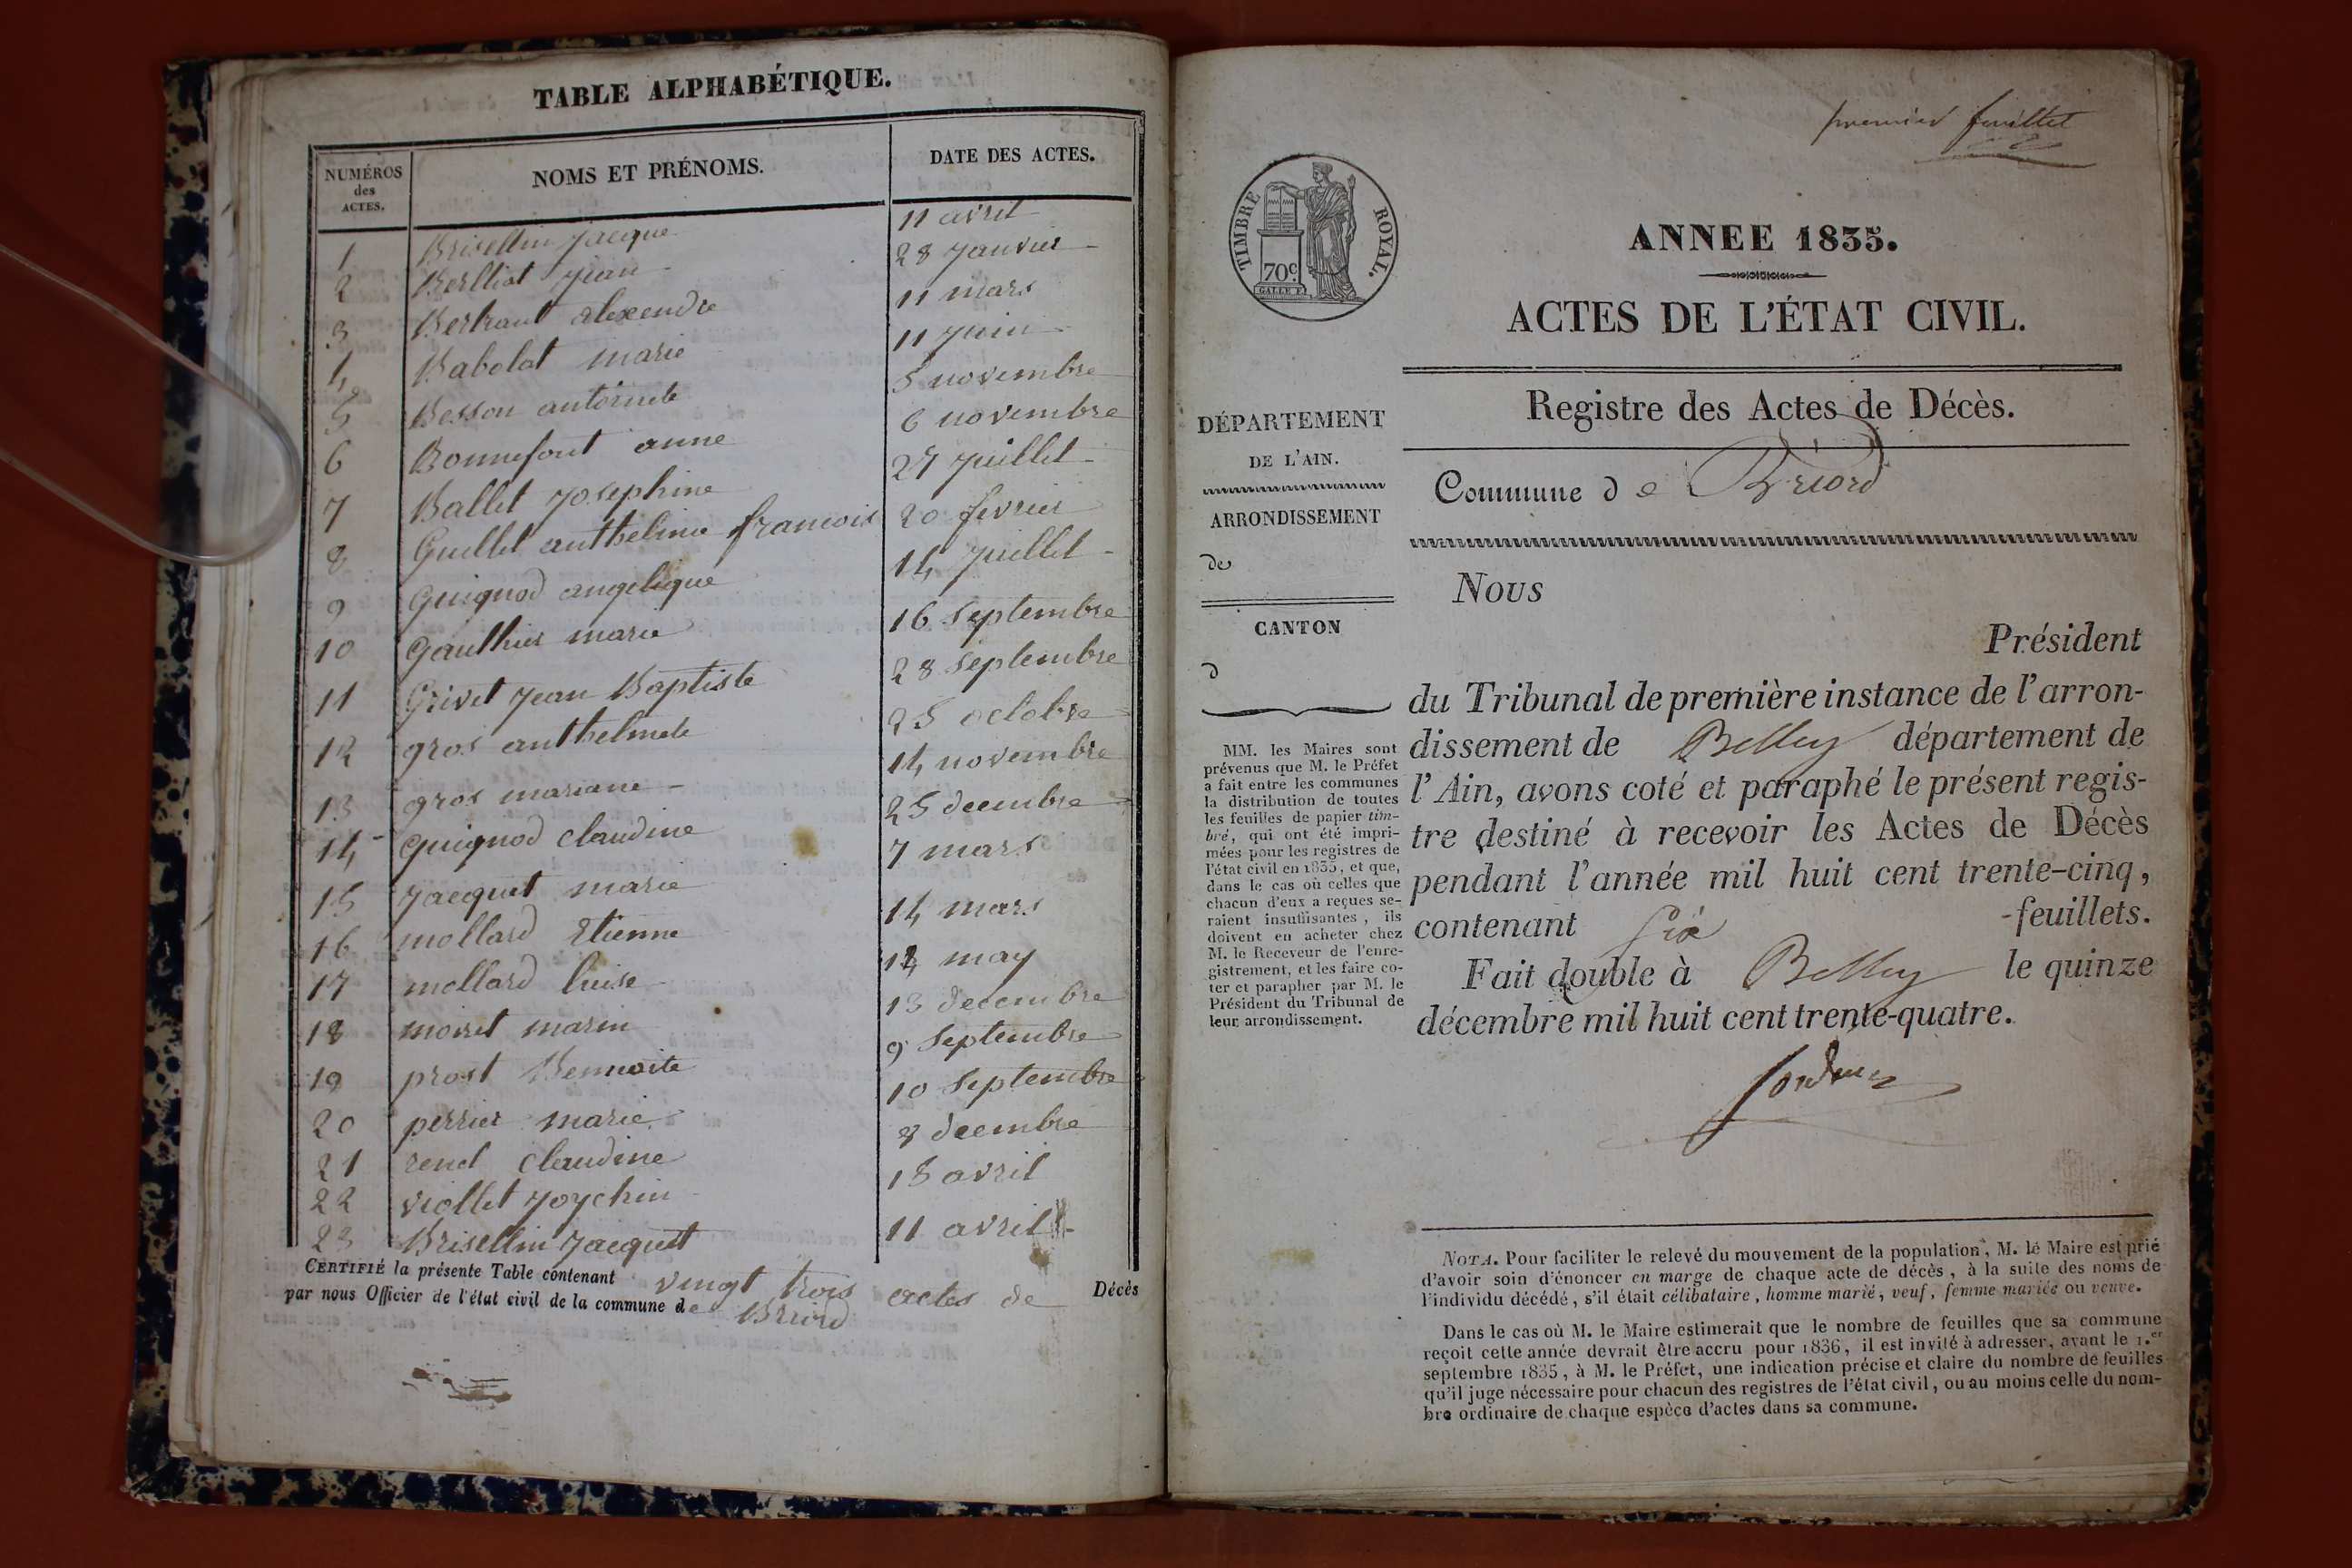 TABLE ALPHABÉTIQUE.
NUMÉROS des ACTES. NOMS ET PRÉNOMS. DATE DES ACTES.
1 Brisellin Jacque 11 avril
2 Berlliat Jean 28 Janvier
3 Bertrant alexendre 11 mars
4 Babolat marie 11 Juin
5 Besson antoinete 5 novembre
6 Bonnefont anne 6 novembre
7 Ballet Josephine 27 Juillet
8 Guillet anthelme francois 20 fevrier
9 Guignod angelique 14 Juillet
10 Gauthier marie 16 Septembre
11 Grivet Jean Baptiste 28 Septembre
12 gros anthelmete 25 octobre
13 gros mariane 14 novembre
14 Guignod Claudine 25 decembre
15 Jacquet marie 7 mars
16 mollard Etienne 14 mars
17 mollard luise may
18 moiret marin 13 decembre
19 prost Bennoite 9 Septembre
20 perrier marie 10 Septembre
21 renel Claudine 8 decembre
22 viollet Joychin 18 avril
23 Brisellin Jacquet 11 avril
CERTIFIÉ la présente Table contenant vingt trois actes de Décès
par nous Officier de l'état civil de la commune de Briord
premier feuillet
TIMBRE ROYAL.
70c.
GALLE F.
ANNEE 1835.
ACTES DE L'ÉTAT CIVIL.
Registre des Actes de Décès.
Commune de Briord
DÉPARTEMENT
DE L'AIN.
ARRONDISSEMENT
de
CANTON
d
MM. les Maires sont
prévenus que M. le Préfet
a fait entre les communes
la distribution de toutes
les feuilles de papier tim-
bré, qui ont été impri-
mées pour les registres de
l'état civil en 1835, et que,
dans le cas où celles que
chacun d'eux a reçues se-
raient insuffisantes, ils
doivent en acheter chez
M. le Receveur de l'enre-
gistrement, et les faire co-
ter et parapher par M. le
Président du Tribunal de
leur arrondissement.
Nous
Président
du Tribunal de première instance de l'arron-
dissement de Belley département de
l'Ain, avons coté et paraphé le présent regis-
tre destiné à recevoir les Actes de Décès
pendant l'année mil huit cent trente-cinq,
contenant Six -feuillets.
Fait double à Belley le quinze
décembre mil huit cent trente-quatre.
NOTA. Pour faciliter le relevé du mouvement de la population, M. le Maire est prié
d'avoir soin d'énoncer en marge de chaque acte de décès, à la suite des noms de
l'individu décédé, s'il était célibataire, homme marié, veuf, femme mariée ou veuve.
Dans le cas où M. le Maire estimerait que le nombre de feuilles que sa commune
reçoit cette année devrait être accru pour 1836, il est invité à adresser, avant le 1.er
septembre 1835, à M. le Préfet, une indication précise et claire du nombre de feuilles
qu'il juge nécessaire pour chacun des registres de l'état civil, ou au moins celle du nom-
bre ordinaire de chaque espèce d'actes dans sa commune.